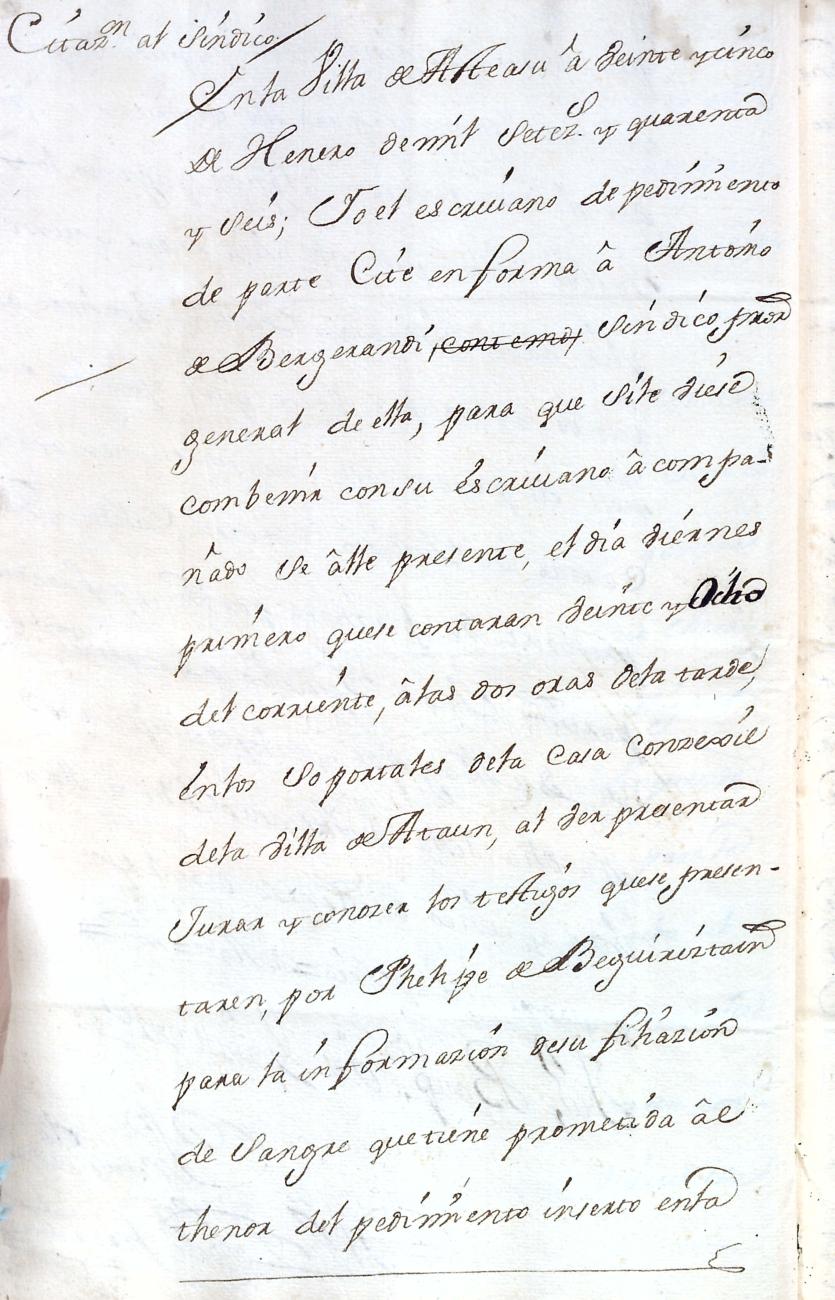 Citazon al sindico
En la Villa de Asteasu â veinte y cinco
de Henero de mil Setezs. y quarenta
y seis; Yo el escrivano de pedimiento
de parte Cite en forma â Antonio
de Bergerandi, Sindico pror
general de ella, para que sile diese
combenir con su escrivano âcompa-
ñado se âlle presente, el dia viernes
primero que se contaran veinte y Ocho
del corriente, âlas dos oras dela tarde,
en los soportales dela Casa Conzexil
dela Villa de Ataun, al ver presentar
Jurar y conozer los testigos quese presen-
taren, por Phelipe de Beguiriztain
para la informazion desu filiazion
de sangre que tiene prometida âel
thenor del pedimiento inserto enla